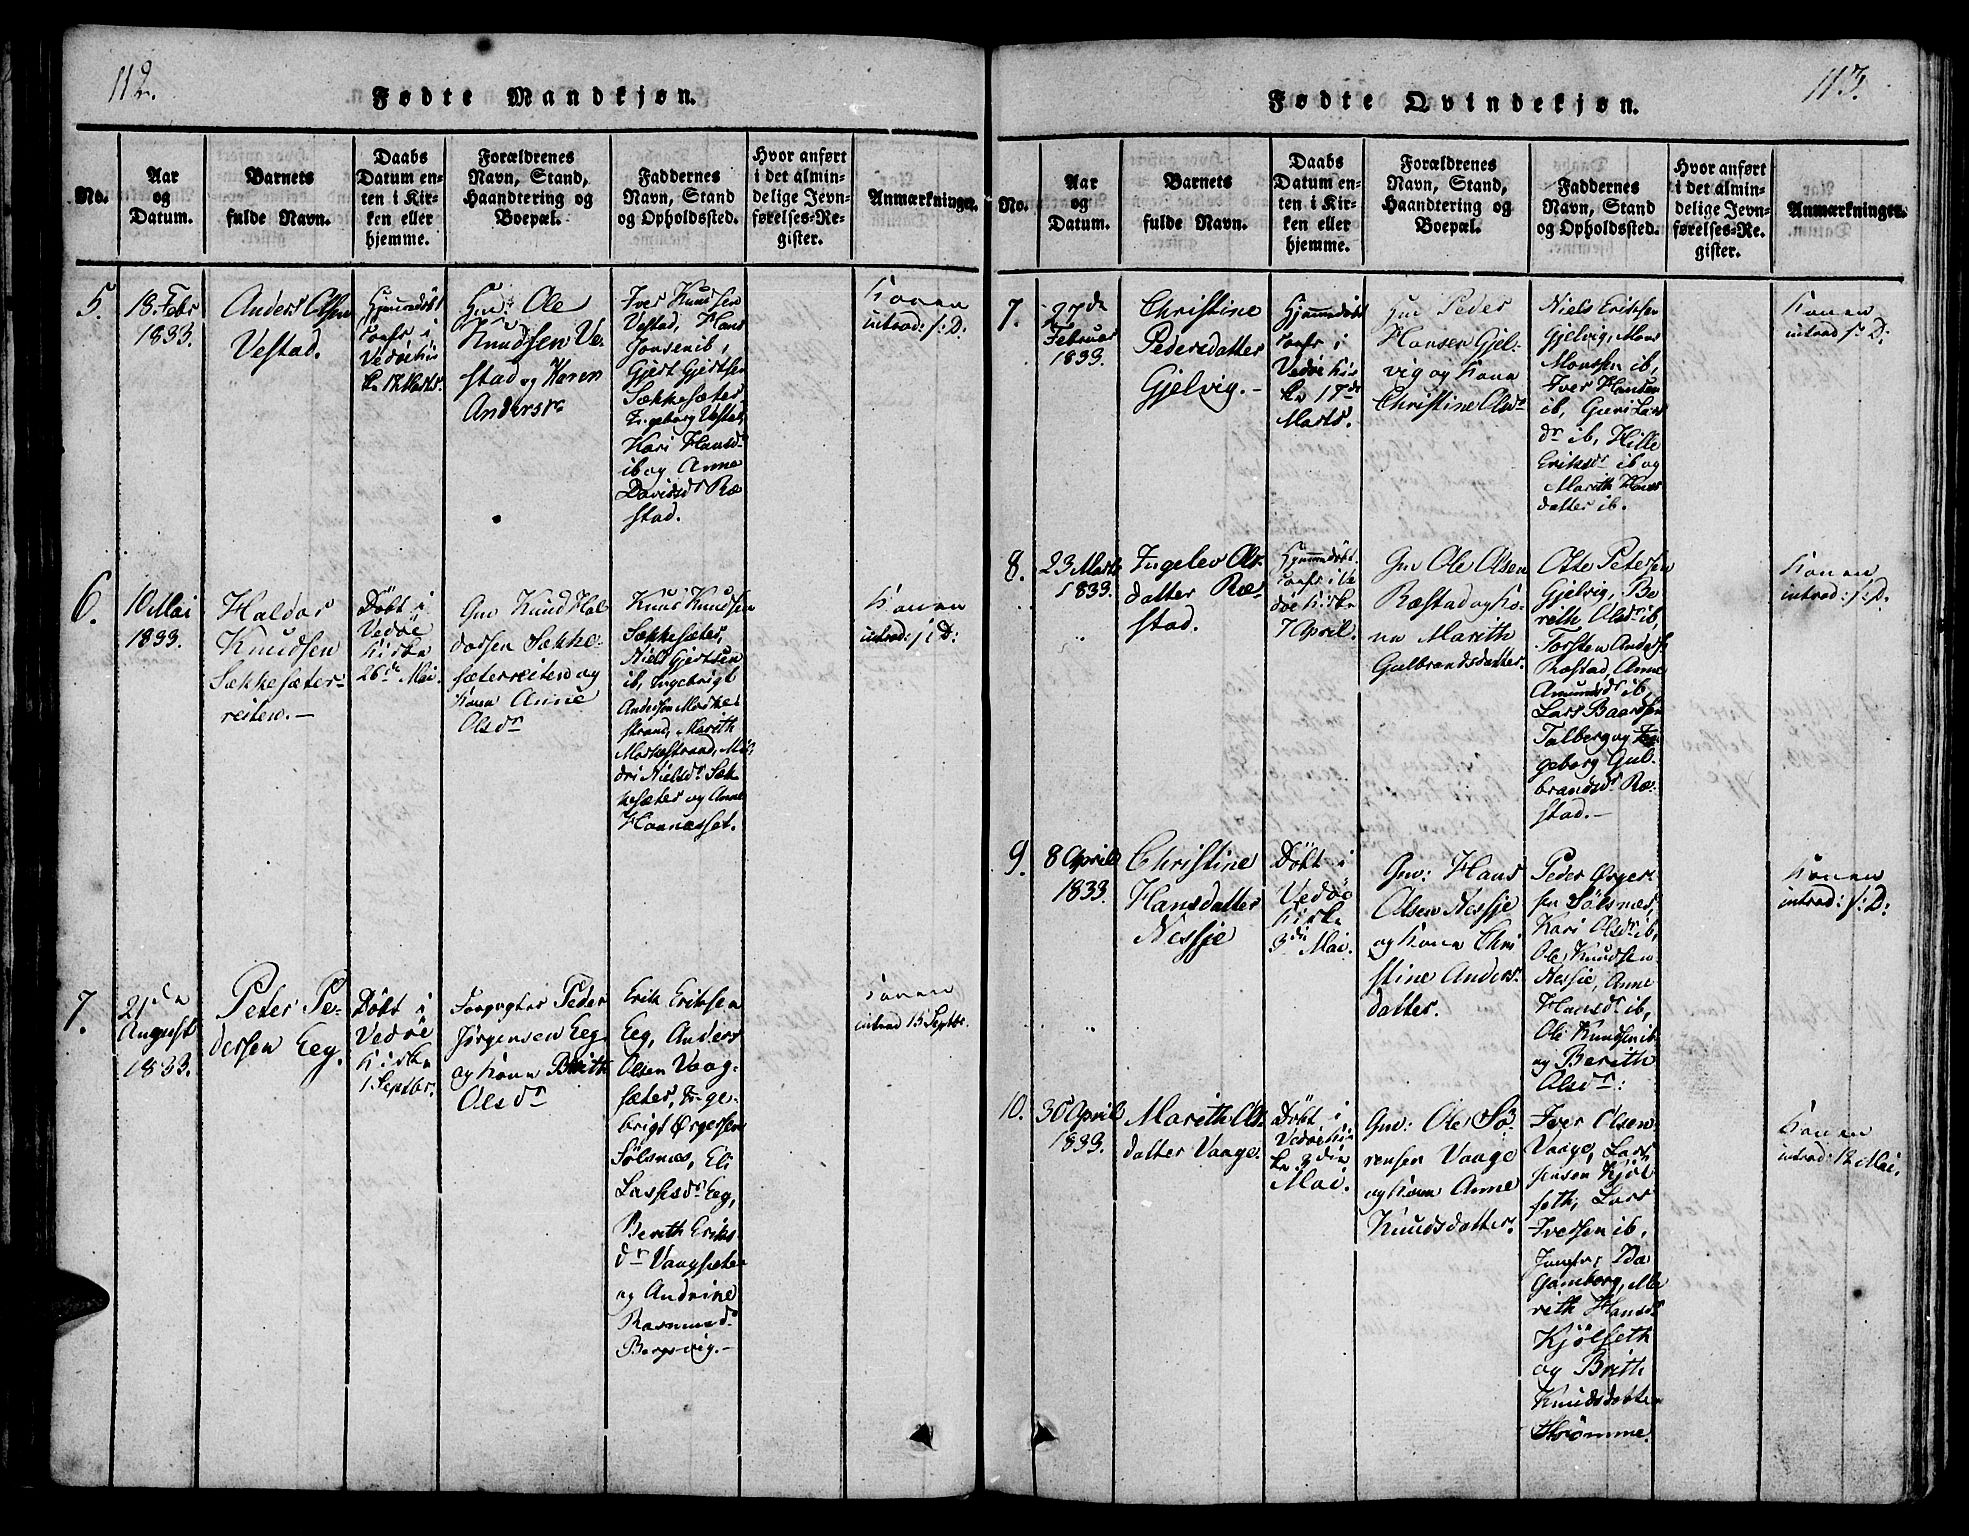 112.
Fødte Mandkjøn.
No.
Aar
og
Datum.
Barnets
fulde Navn.
Daabs
Datum en-
ten i Kir-
ken eller
hjemme.
Forældrenes
Navn, Stand,
Haandtering og
Boepæl.
Faddernes
Navn, Stand
og Opholdssted.
Hvor anført
i det almin-
delige Jevn-
førelses-Re-
gister.
Anmærkninger.
5.
18. Febr
1833.
Anders Olsen
Vestad.
Hjemmedöbt
confr i
Vedöe Kir
ke 17 Marts.
Gm: Ole
Knudsen Ve-
stad og Karen
Andersdr
Iver Knudsen
Vestad, Hans
Jonsen ib,
Gjert Gjertsen
Sækkesæter,
Ingeborg Vestad,
Kari Hansdr
ib og Anne
Davidsdr Ræ
stad.
Konen
introd: s: D:
6.
10 Mai
1833.
Haldor
Knudsen
Sækkesæter-
reiten.-
Döbt i
Vedöe
Kirke
26de Mai
Gm Knud Hal
dorsen Sække-
sæterreiten og
Kone Anne
Olsdr
Knud Knudsen
Sækkesæter,
Niels Gjertsen
ib, Ingebrigt
Andersen Mork
strand, Marith
Morkestrand,
dri Nielsdr Sæk
kesæter og Anne
Hovnæsset.
Konen
introd: s: D:
7.
21de
August
1833.
Peter Pe-
dersen Eeg.
Döbt i
Vedöe
Kirke
1 Septbr.
Forpagter Peder
Jörgensen Eeg
og Kone Brith
Olsdr
Erik Eriksen
Eeg, Anders
Olsen Vaag-
sæter, Inge-
brigt Örgersen
Sölsnæs, Eli
Lassesdr Eeg,
Berith Eriks
dr Vaagsæter
og Andrine
Rasmusdr
Bergsvig.-
Konen
introd 15 Septbr.
113.
Fødte Qvindekjøn.
No.
Aar
og
Datum.
Barnets
fulde Navn.
Daabs
Datum en-
ten i Kir-
ken eller
hjemme.
Forældrenes
Navn, Stand,
Haandtering og
Boepæl.
Faddernes
Navn, Stand
og Opholdssted.
Hvor anført
i det almin-
delige Jevn-
førelses-Re-
gister.
Anmærkninger.
7.
27de
Februar
1833.
Christine
Pedersdatter
Gjelvig.-
Hjemmedöbt
confr i
Vedöe Kir
ke 17de
Marts.
Gm Peder
Hansen Gjel-
vig og Kone
Christine Olsdr
Niels Eriksen
Gjelvig, Mons
Monsen ib,
Iver Hansen
ib, Guri Lars
dr ib, Hille
Eriksdr ib og
Marith Hans
datter ib.
Konen
introd: s: D:
8.
23 Marts
1833.
Ingelev Ols-
datter Ræ-
stad.
Hjemmedöbt
confr i Ve
döe Kirke
7 April.
Gm Ole Olsen
Ræstad og Ko-
ne Marith
Gulbrandsdatter.
Otte Petersen
Gjelvig, Be
reth Olsdr ib,
Torsten Anders
Ræstad, Anne
Amundsdr ib,
Lars Baardsen
Talberg og In
geborg Gul-
brandsdr Ræ-
stad.-
Konen
introd: s: D:
9.
8 April
1833.
Christine
Hansdatter
Nessje
Döbt i
Vedöe
Kirke
3die Mai.
Gm: Hans
Olsen Nessje
og Kone Chri
stine Anders-
datter.
Peder Örger
sen Sölsnæs,
Kari Olsdr ib,
Ole Knudsen
Nessje, Anne
Hansdr ib,
Ole Knudsen ib
og Berith
Olsdr:
Konen
introd: s: D:
10.
30 April
1833.
Marith Ols-
datter Vaage.
Döbt i
Vedöe Kir
ke 3die
Mai.
Gm: Ole Sö-
rensen Vaage
og Kone Anne
Knudsdatter.
Iver Olsen
Vaage, Lars
Jensen Kjöl
seth, Lars
Iversen ib,
Jomfru Ida
Gamborg, Ma
rith Hansdr
Kjölseth
og Brith
Knudsdatter
Strömme.
Konen
introd: 12 Mai.